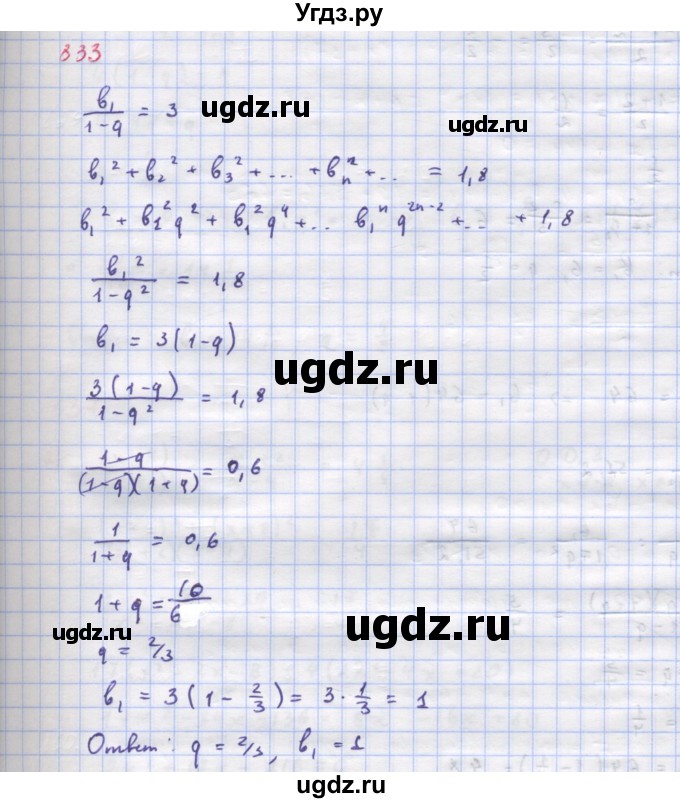 Угдз.ру
833
в₁/(1-q) = 3 ugdz.ru ugdz.ru
в₁² + в₂² + в₃² + ... + вₙ² + .. = 1,8
в₁² + в₁²q² + в₁²q⁴ + .. в₁ⁿ q²ⁿ⁻² + .. + 1,8
в₁²/(1-q²) = 1,8
в₁ = 3(1-q)
ugdz.ru
3(1-q)/(1-q²) = 1,8
(1-q)/((1-q)(1+q)) = 0,6
1/(1+q) = 0,6
1+q = 10/6
ugdz.ru ugdz.ru
q = 2/3
в₁ = 3(1 - 2/3) = 3 · 1/3 = 1
Ответ: q = 2/3, в₁ = 1
ugdz.ru